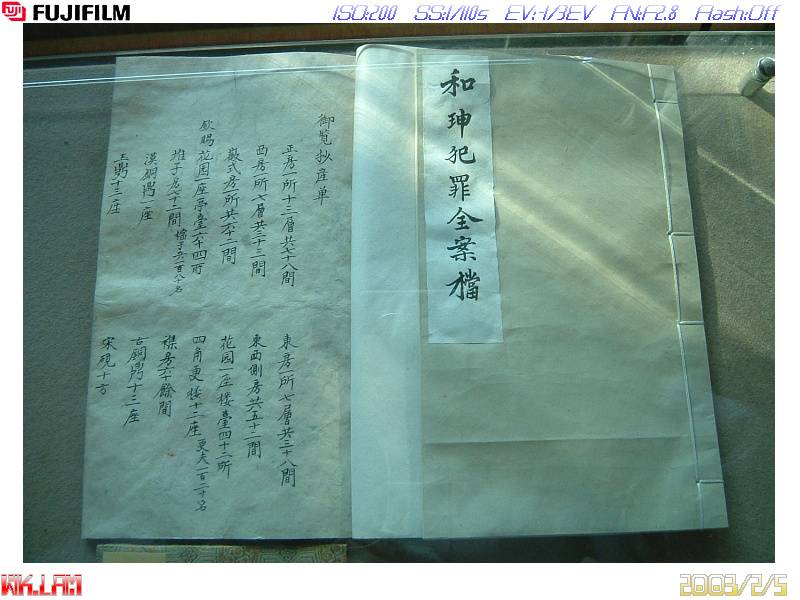 FUJIFILM
ISO:200 SS:1/110s EV:-1/3EV FN:F2.8 Flash:Off
和珅犯罪全案檔
御覧抄産单
正房一所十三層共七十八間
東房一所七層共三十八間
西房一所七層共三十三間
東西側房共五十二間
徽式房一所共六十二間
花园一座楼臺四十二所
欽賜花园一座亭臺六十四所
四角更楼十二座更夫一百二十名
堆子房七十二間檔子兵一百八十名
襍房六十餘間
漢銅鼎一座
古銅鼎十三座
玉鼎十三座
宋硯十方
WK.LAM
2003/2/5